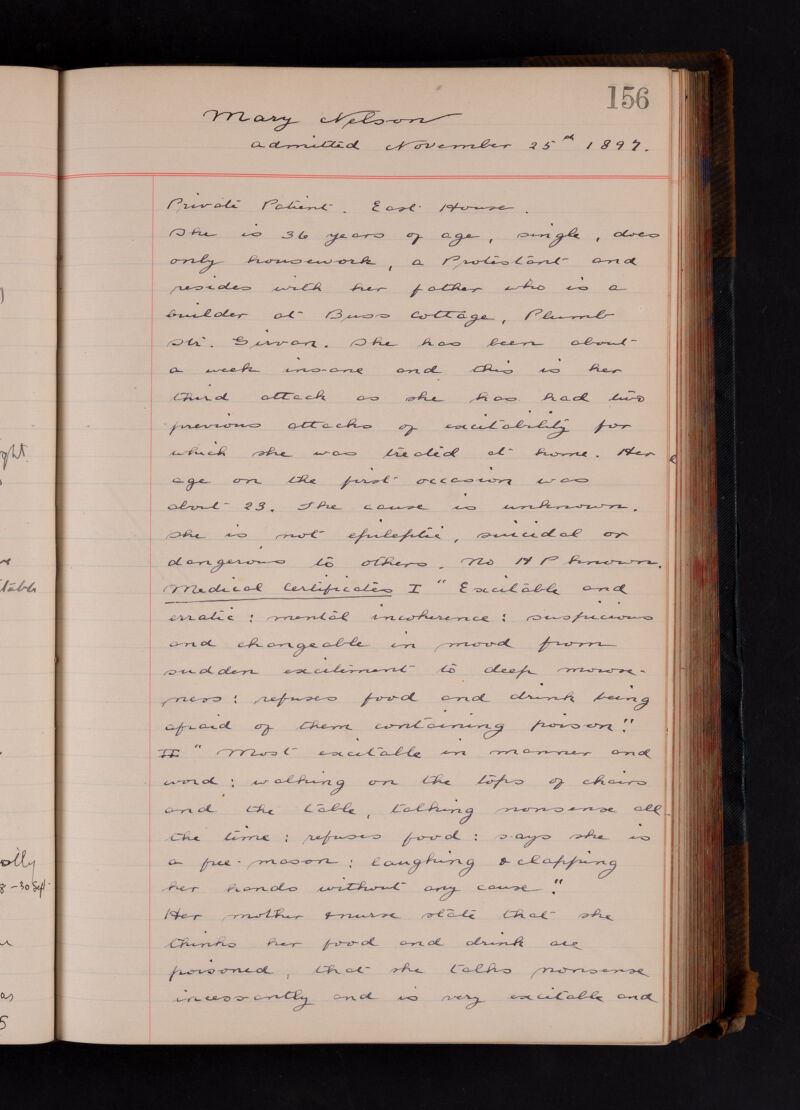 156
Mary Nelson
admitted November 25th 1897.
Private Patient. East House.
She is 36 years of age, single, does
only housework, a Protestant and
resides with her father who is a
builder at Buss Cottage, Plumb
Str. Girvan. She has been about
a week insane and this is her
third attack as she has had two
previous attacks of excitability for
which she was treated at home. Her
age on the first occasion was
about 23. The cause is unknown.
She is not epileptic, suicidal or
dangerous to others. No H P known.
Medical Certificates I " Excitable and
erratic : mental incoherence : suspicious
and changeable in mood from
sudden excitement to deep morose-
ness : refuses food and drink being
afraid of them containing poison".
II " Most excitable in manner and
word : walking on the tops of chairs
and the table, talking nonsense all
the time : refuses food : says she is
a free-mason : laughing & clapping
her hands without any cause".
Her mother & nurse state that she
thinks her food and drink are
poisoned, that she talks nonsense
incessantly and is very excitable and